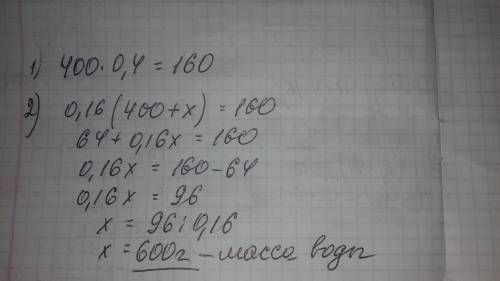 1) 400 · 0,4 = 160
2) 0,16 (400+x) = 160
64 + 0,16x = 160
0,16x = 160 - 64
0,16x = 96
x = 96 : 0,16
x = 600г - масса воды